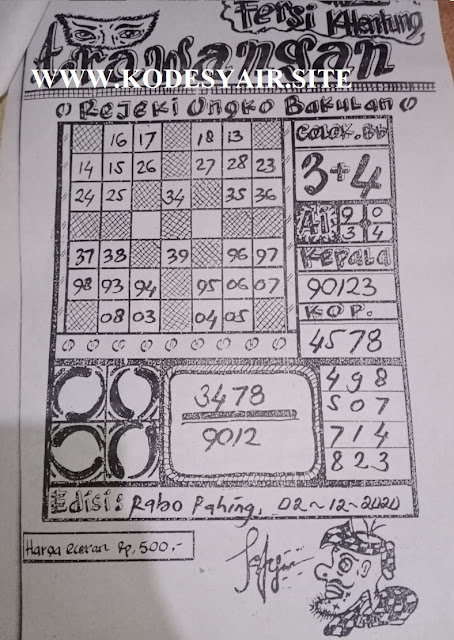 Fersi KHentung
Arawangan
WWW.KODESYAIR.SITE
Rejeki Ungko Bakulan
16 17 18 13
14 15 26 27 28 23
24 25 34 35 36
37 38 39 96 97
98 93 94 95 06 07
08 03 04 05
COLOK.BB
3+4
Ai 9 0
3 4
Kepala
90123
KOP.
4578
3478
9012
498
507
714
823
Edisi: Rabo Pahing, 02-12-2020
Harga Eceran Rp, 500,-